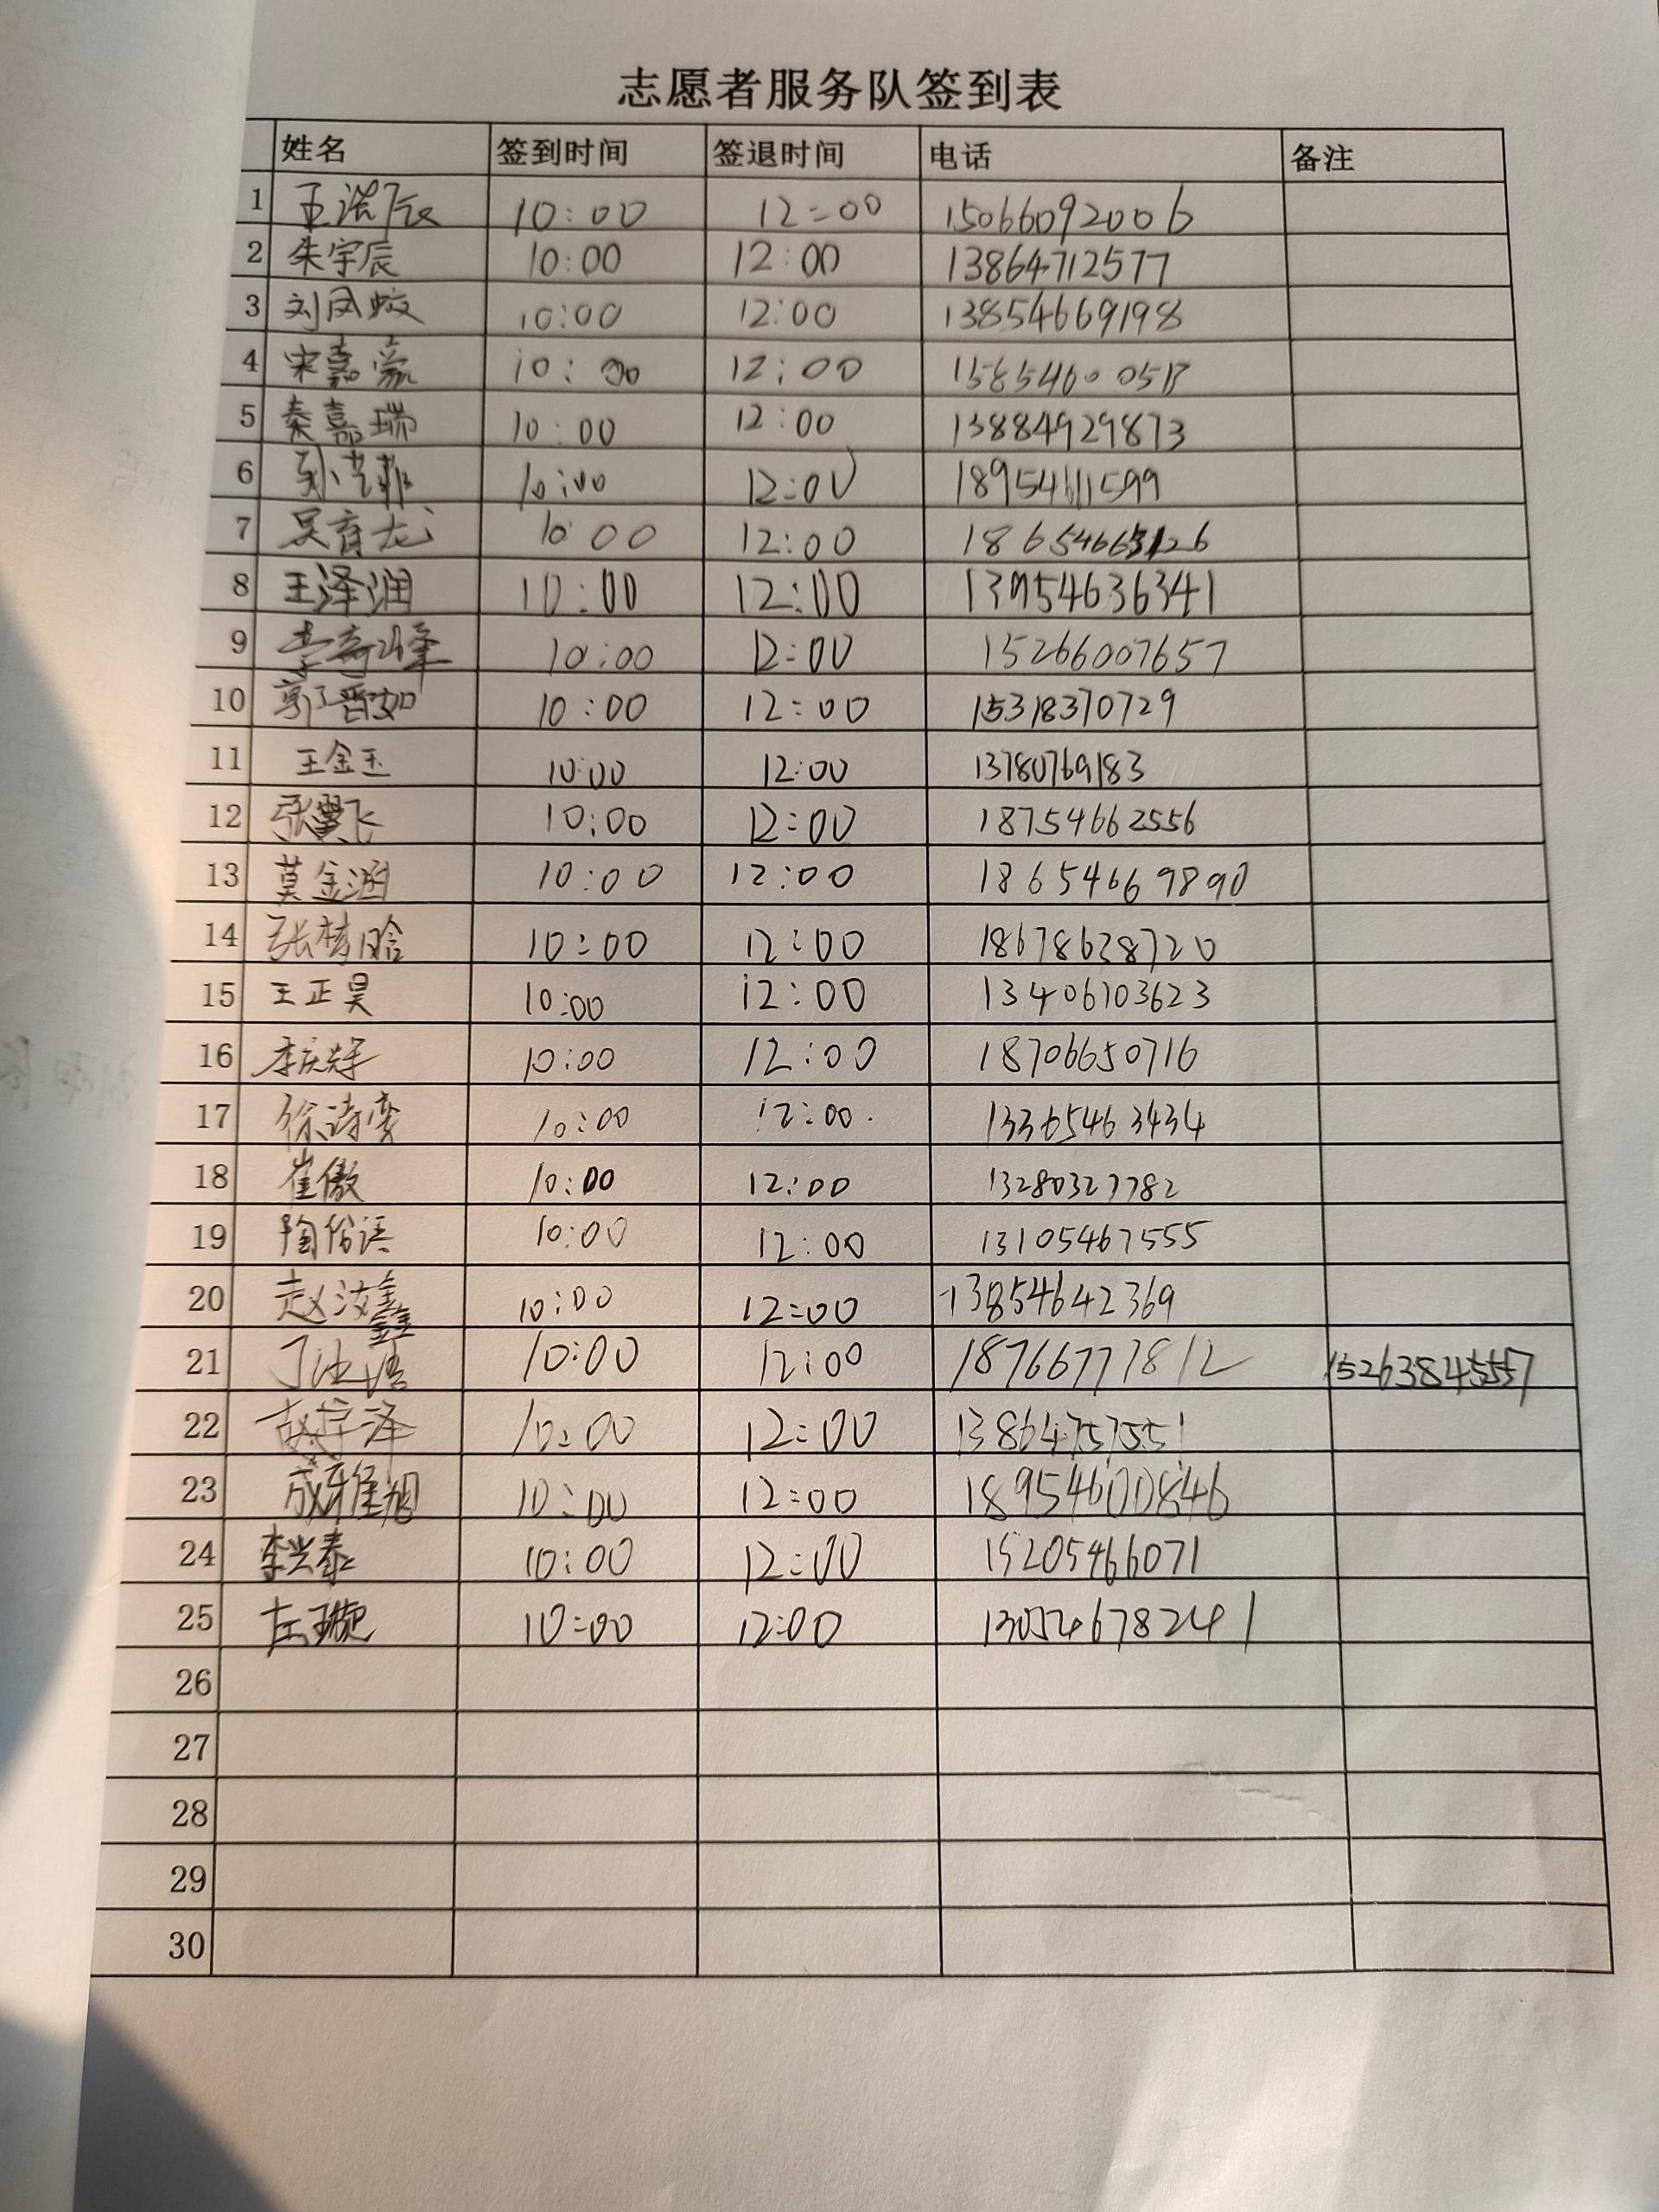 志愿者服务队签到表
姓名 签到时间 签退时间 电话 备注
1 王浩辰 10:00 12:00 15066092006
2 朱宇辰 10:00 12:00 13864712577
3 刘凤蛟 10:00 12:00 13854669198
4 宋嘉 10:00 12:00
5 秦嘉瑞 10:00 12:00 13884929873
6 10:00 12:00 18954611599
7 吴育龙 10:00 12:00
8 王泽润 10:00 12:00 13954636341
9 李奇峰 10:00 12:00 15266007657
10 郭晋如 10:00 12:00 15318370729
11 王金玉 10:00 12:00 13780769183
12 张翼飞 10:00 12:00 18754662556
13 莫金涵 10:00 12:00 18654669890
14 张梦晗 10:00 12:00 18678628720
15 王正昊 10:00 12:00 13406103623
16 李庆祥 10:00 12:00 18706650716
17 徐诗雯 10:00 12:00 13365463434
18 崔傲 10:00 12:00 13280327782
19 陶俗语 10:00 12:00 13105467555
20 赵汝鑫 10:00 12:00 13854642369
21 10:00 12:00 18766777812 15263845557
22 赵宇泽 10:00 12:00 13864757551
23 成雅旭 10:00 12:00 18954600846
24 李兴泰 10:00 12:00 15205466071
25 10:00 12:00 13054678241
26
27
28
29
30